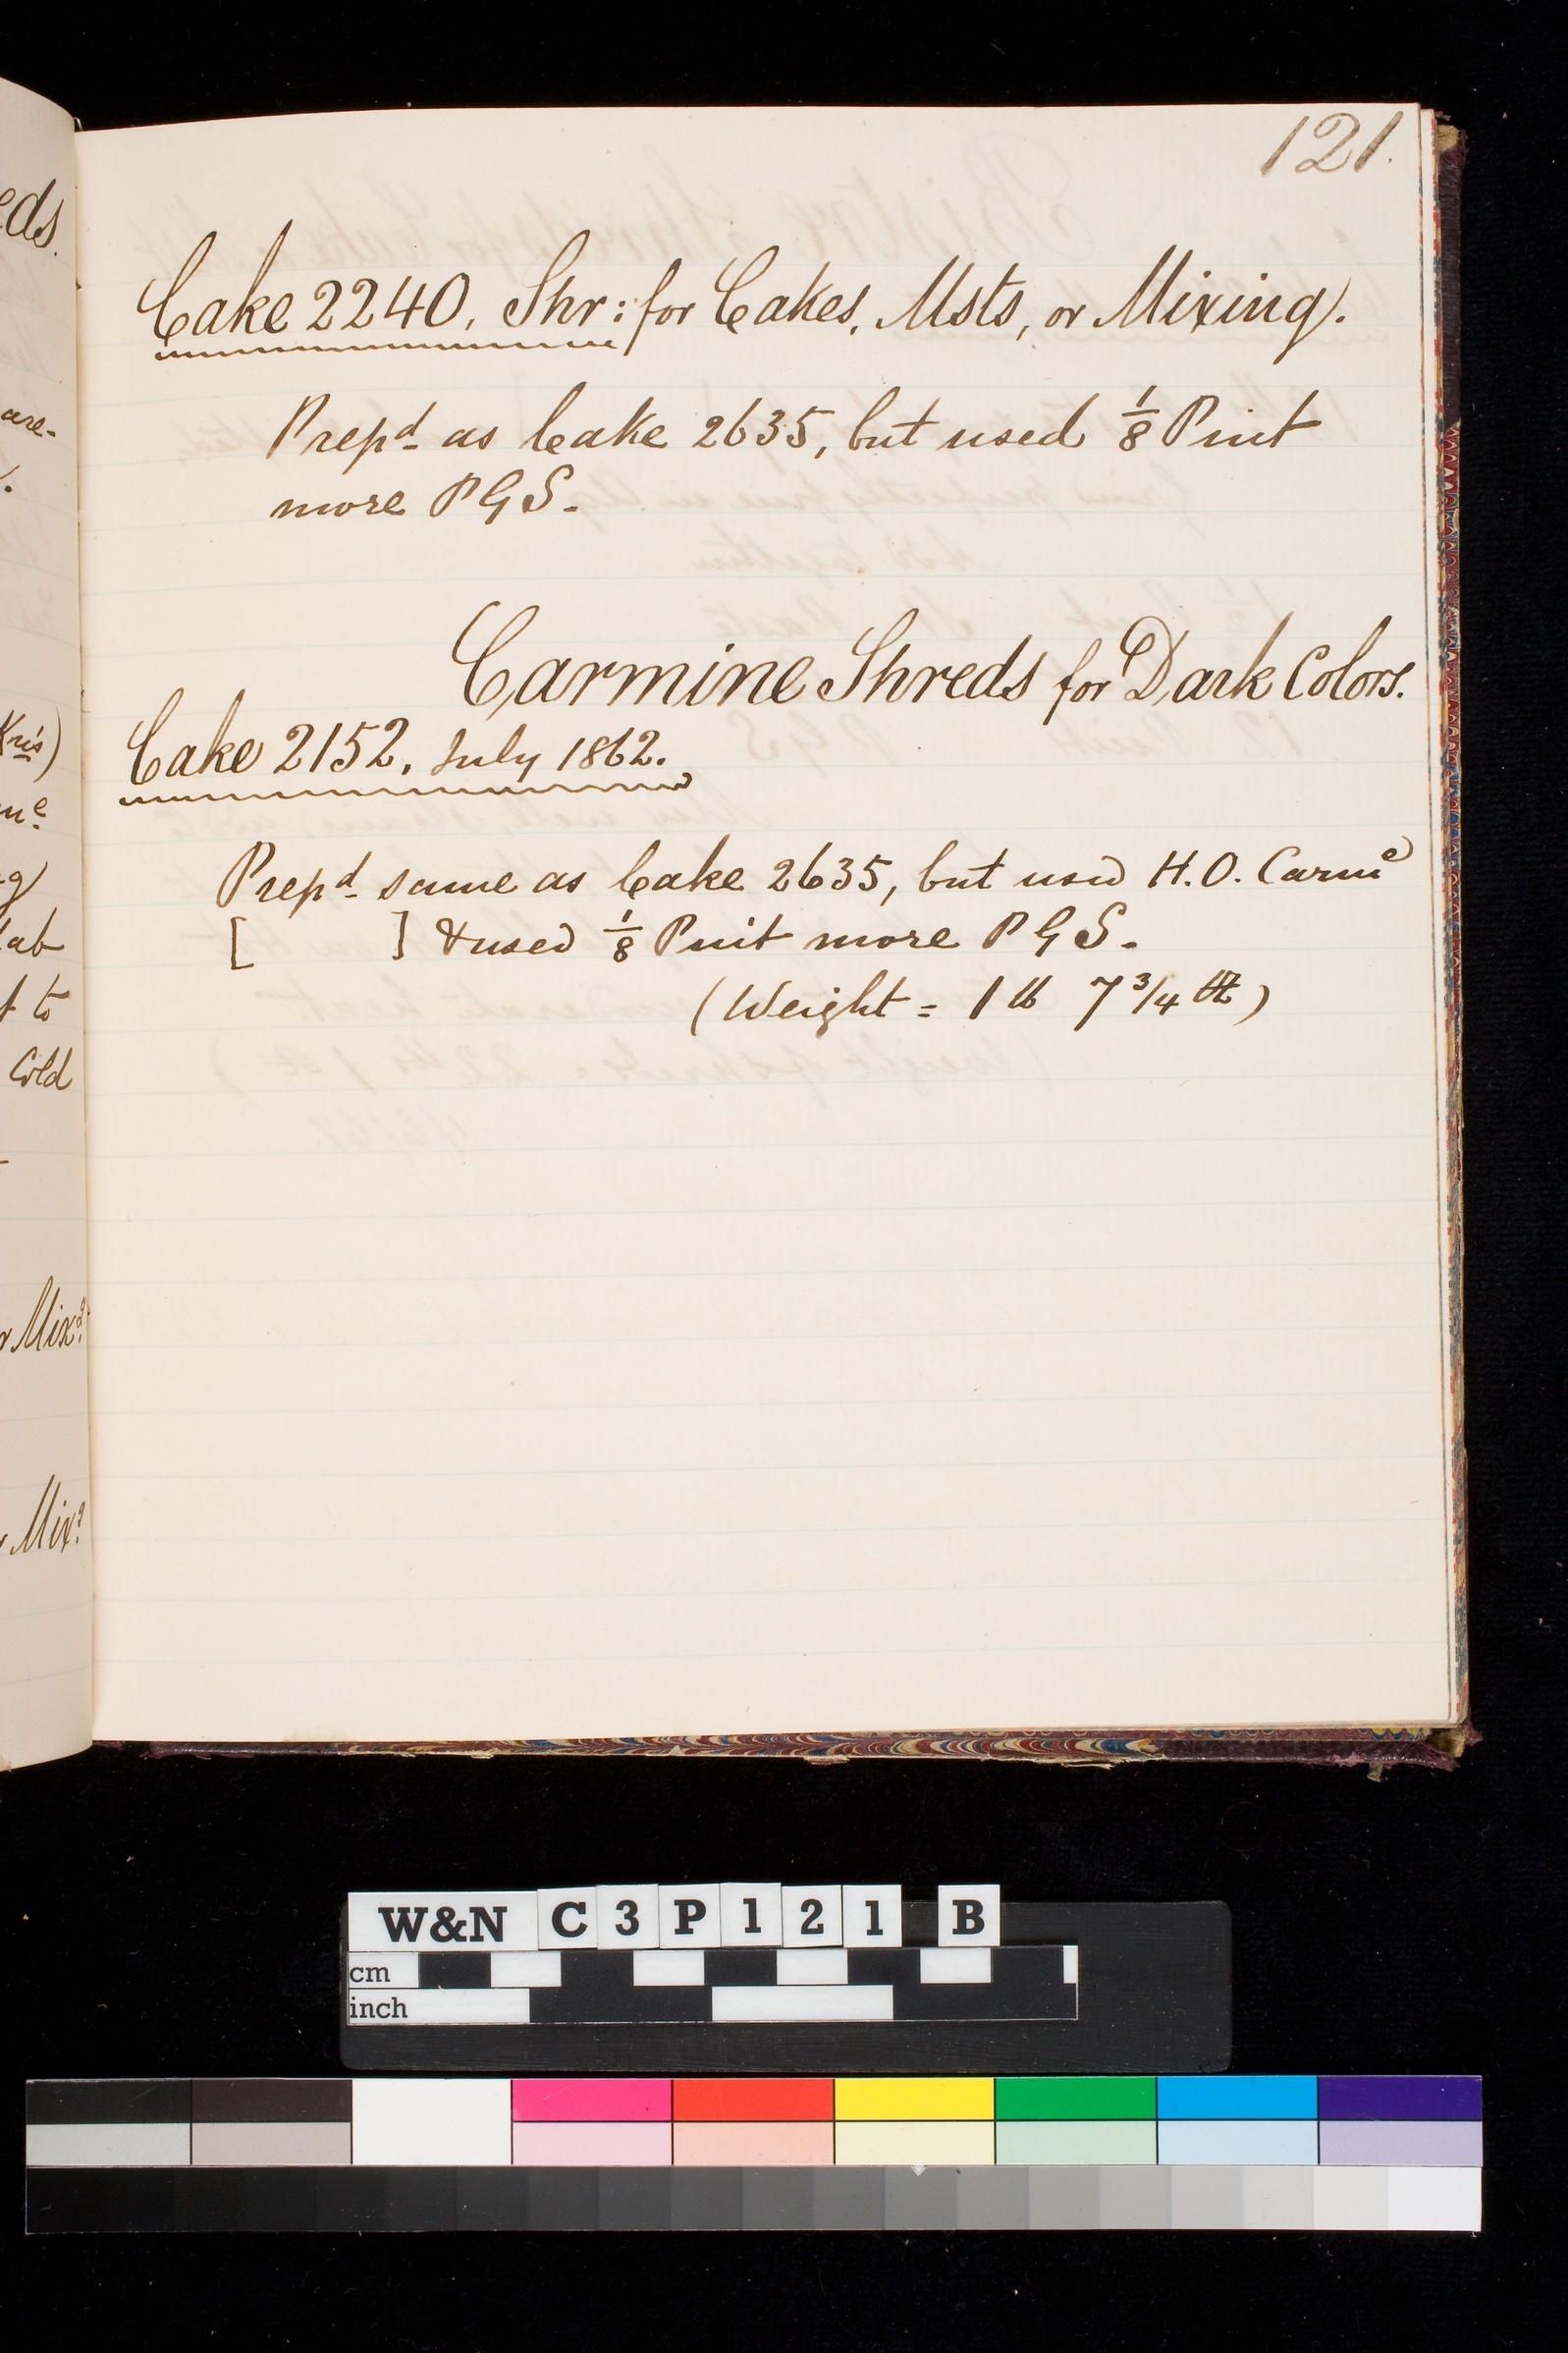 121.
Cake 2240, Shr: for Cakes, Msts, or Mixing.
Prepd as Cake 2635, but used 1/8 Pint
more P G S.
Carmine Shreds for Dark Colors.
Cake 2152, July 1862.
Prepd same as Cake 2635, but used H.O. Carme
[ ] & used 1/8 Pint more P G S.
(Weight = 1 lb 7 3/4
eds.
are-
Kris)
me
g
ab
t to
Cold
Mixg
Mixg
W&N C3P121 B
cm
inch